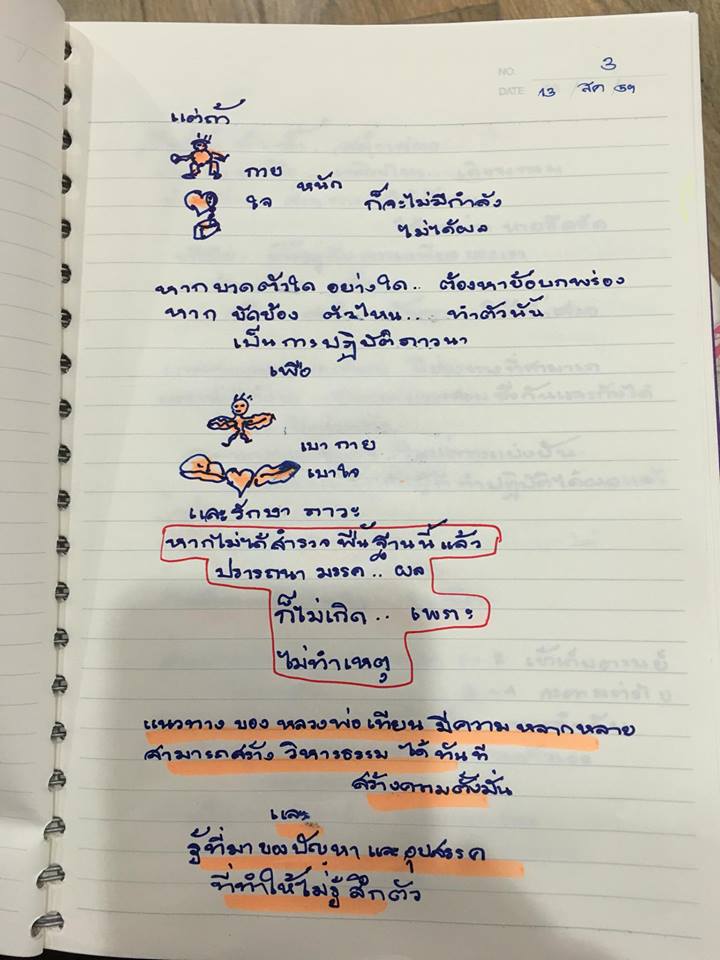 NO. 3
DATE 13 สค 59
แต่ถ้า
กาย
หนัก
ใจ
ก็จะไม่มีกำลัง
ไม่ได้ผล
หาก ขาดตัวใด อย่างใด.. ต้องหาข้อบกพร่อง
หาก ขัดข้อง ตัวไหน... ทำตัวนั้น
เป็น การปฏิบัติภาวนา
เพื่อ
เบา กาย
เบาใจ
และรักษา ภาวะ
หากไม่ได้สำรวจ พื้นฐานนี้ แล้ว
ปรารถนา มรรค.. ผล
ก็ไม่เกิด.. เพราะ
ไม่ทำเหตุ
แนวทาง ของ หลวงพ่อ เทียน มีความ หลากหลาย
สามารถสร้าง วิหารธรรม ได้ ทันที
สร้างความตั้งมั่น
และ
รู้ที่มา ของปัญหา และ อุปสรรค
ที่ทำให้ไม่รู้สึกตัว